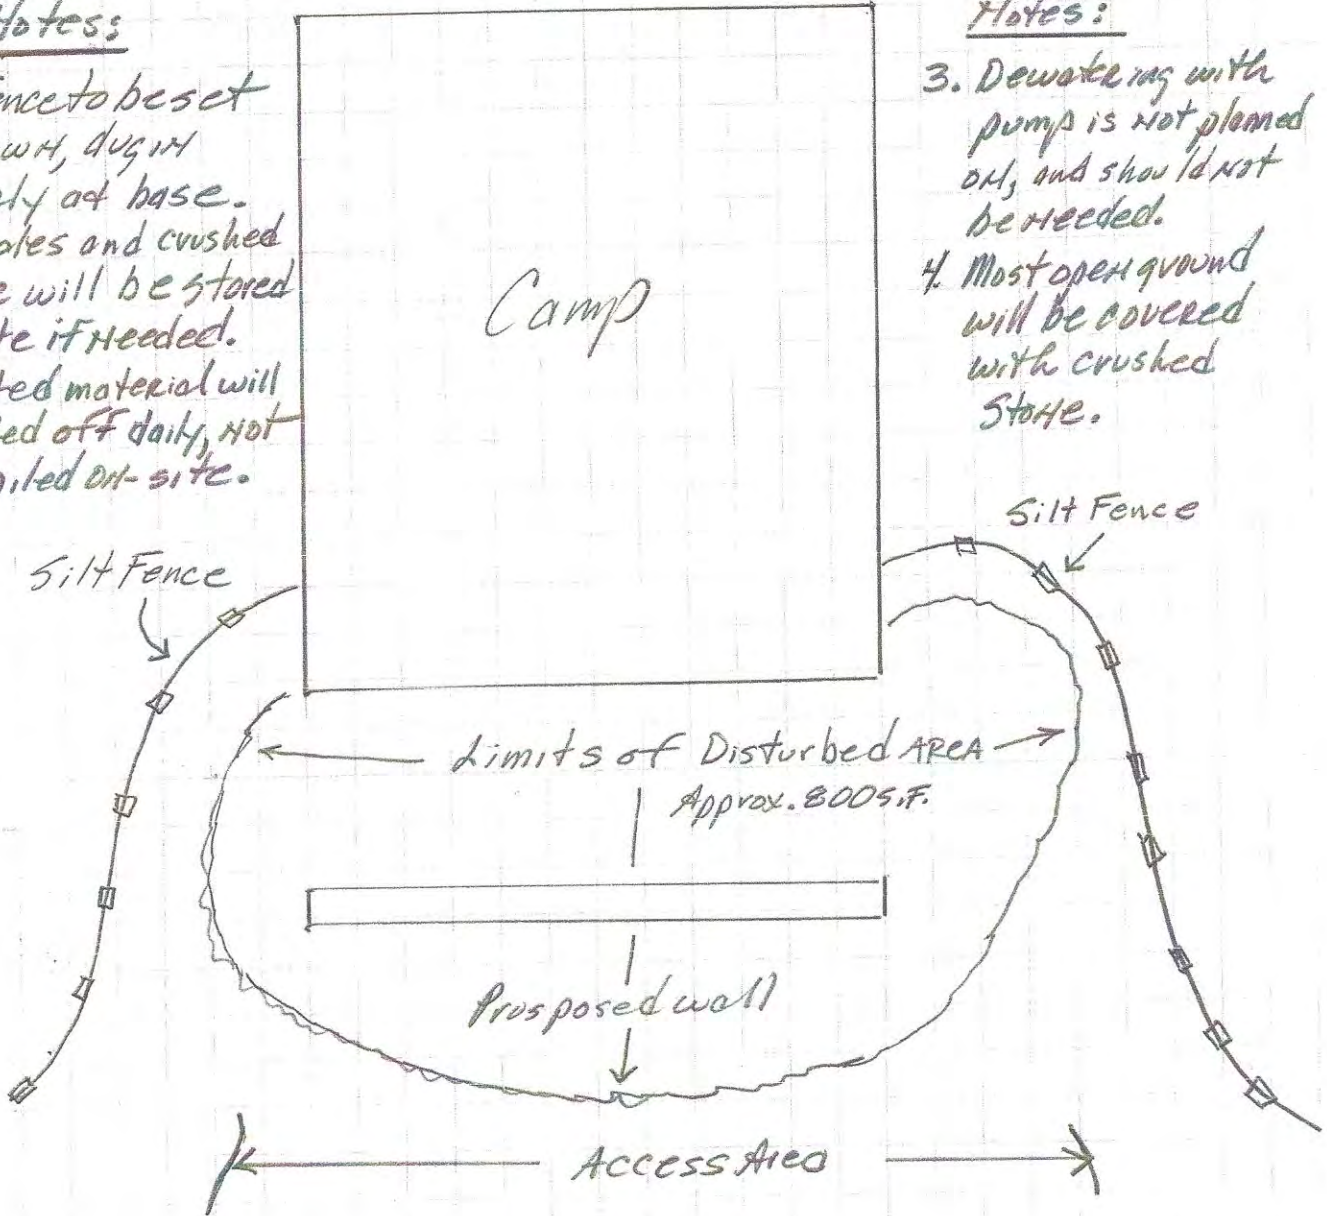 Notes:
to be set
dug in
at base.
and crushed
will be stored
if needed.
material will
off daily, not
on-site.
Notes:
3. Dewatering with
pump is not planned
on, and should not
be needed.
4. Most open ground
will be covered
with crushed
Stone.
Camp
Silt Fence
Silt Fence
Limits of Disturbed AREA
Approx. 800 S.F.
Prosposed wall
Access Area